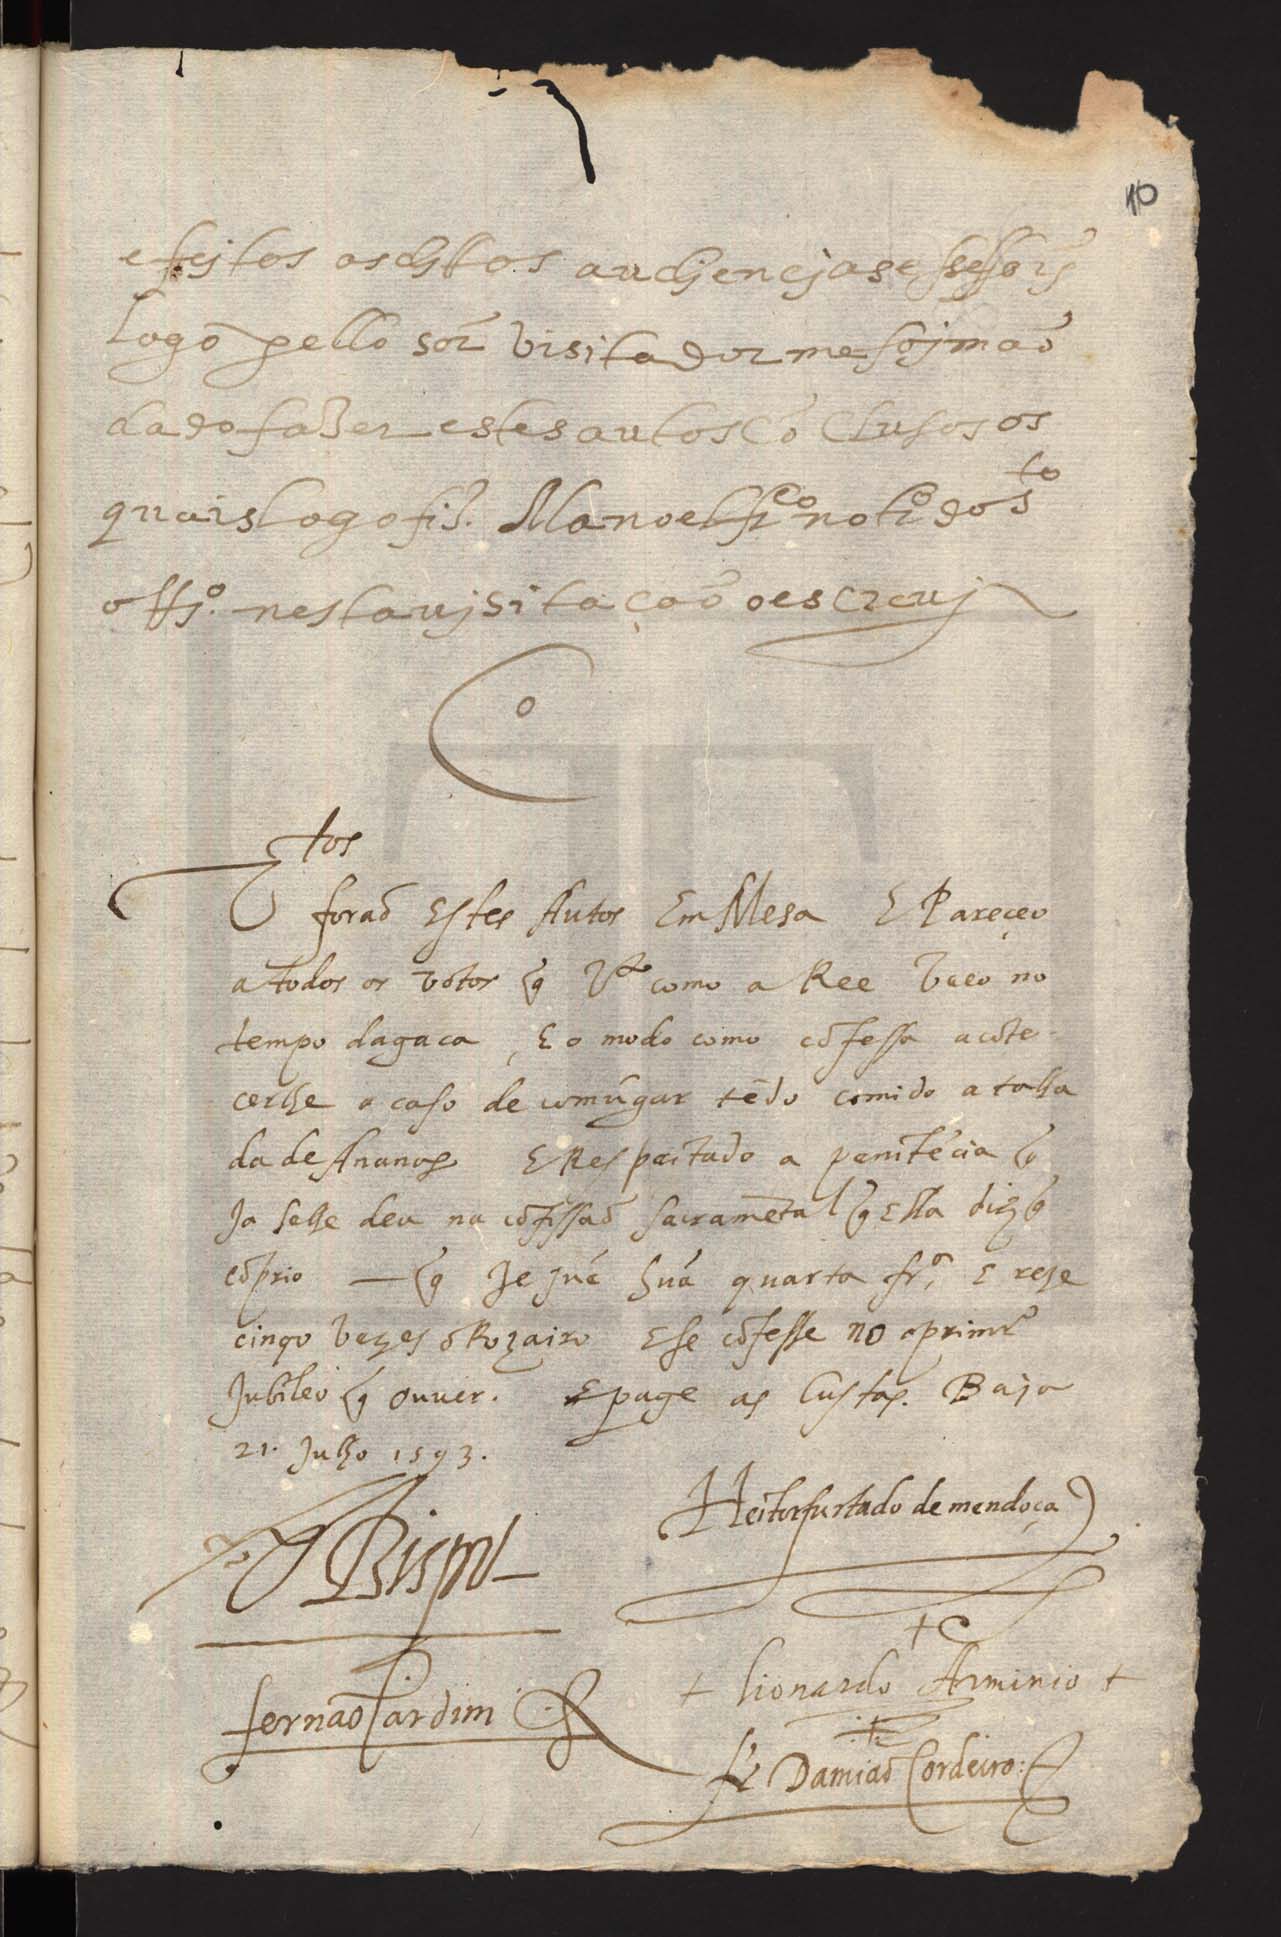 10
e fejtos os djtos audjencjas e sesõis
logo pello sõr visitador me foj mão
dado fazer estes autos cõ clusos os
quais logo fis. Manoel frco notro do sto
offjº. nesta vjsitação o escrevj
Co
Vtos
forão Estes Autos Em Mesa E Pareçeo
a todos os votos q̃ vto como a Ree veo no
tempo da graca, E o modo como cõfessa acõte-
cerlhe o caso de comũgar tẽdo comido a talha
da de Ananas E Respeitado a penitẽcia q̃
Ja se lhe deu na cõfissaõ sacramẽtal q̃ Ella diz q̃
cõprio — q̃ Jejuẽ hũa quarta frª, E reze
cinqo vezes o Rozairo E se cõfesse no o primrº
Jubileo q̃ ouver. E page as Custas. Baja
21. Julho 1593.
O Bispo
Heitor furtado de mendoça
fernaõ Cardim
+ lionardo Arminio +
fr Damiaõ Cordeiro